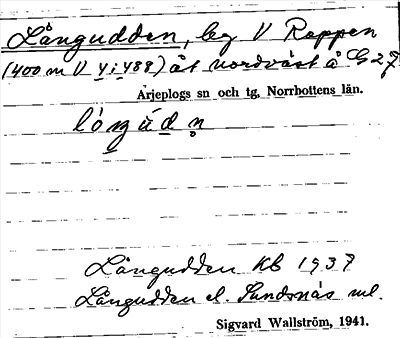 Långudden, beg V Rappen
(400 m V y i 488) åt nordväst å G 27
Arjeplogs sn och tg, Norrbottens län.
lóŋúdn̥
Långudden Kb 1937
Långudden el. Sundsnäs ml.
Sigvard Wallström, 1941.